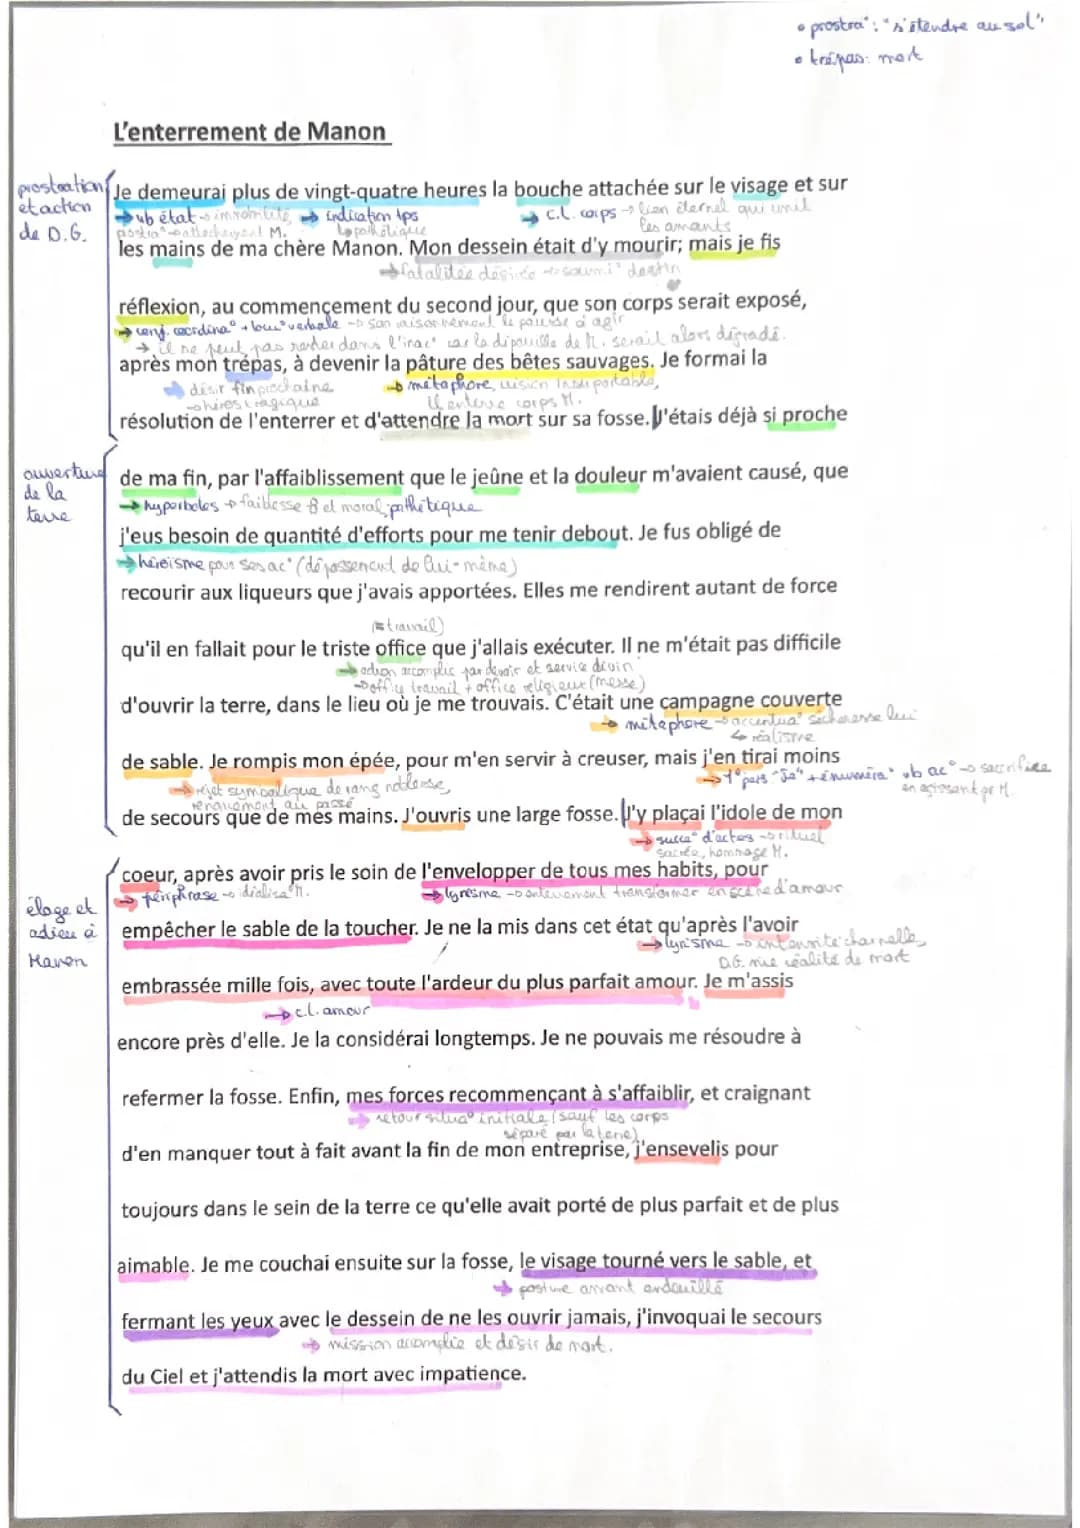 • prostra°: "s'étendre au sol"
• trépas: mort
L'enterrement de Manon
prostration
et action
de D.G.
Je demeurai plus de vingt-quatre heures la bouche attachée sur le visage et sur
→ vb état → immobilité → indication tps → c.l. corps → lien éternel qui unit
prostra° → attachement M. ↳ pathétique les amants
les mains de ma chère Manon. Mon dessein était d'y mourir; mais je fis
→ fatalitée désirée → soumi° destin
réflexion, au commencement du second jour, que son corps serait exposé,
→ conj. coordina° + tour° verbale → son raisonnement le pousse à agir
→ il ne peut pas rester dans l'inac° car la dépouille de M. serait alors dégradé.
après mon trépas, à devenir la pâture des bêtes sauvages. Je formai la
→ désir fin prochaine → métaphore, vision insuportable,
→ héros tragique il enterre corps M.
résolution de l'enterrer et d'attendre la mort sur sa fosse. J'étais déjà si proche
ouverture
de la
terre
de ma fin, par l'affaiblissement que le jeûne et la douleur m'avaient causé, que
→ hyperboles → faiblesse et moral, pathétique
j'eus besoin de quantité d'efforts pour me tenir debout. Je fus obligé de
→ héroïsme pour ses ac° (dépassement de lui-même)
recourir aux liqueurs que j'avais apportées. Elles me rendirent autant de force
(= travail)
qu'il en fallait pour le triste office que j'allais exécuter. Il ne m'était pas difficile
→ action accomplie par devoir et service divin
→ office travail + office religieux (messe)
d'ouvrir la terre, dans le lieu où je me trouvais. C'était une campagne couverte
→ métaphore → accentua° sécheresse lieu
↳ réalisme
de sable. Je rompis mon épée, pour m'en servir à creuser, mais j'en tirai moins
→ rejet symbolique de rang noblesse, → 1° pers "Je" + énuméra° vb ac° → sacrifice
renoncement au passé en agissant pr M.
de secours que de mes mains. J'ouvris une large fosse. J'y plaçai l'idole de mon
→ succe° d'actes → rituel
sacrée, hommage M.
élage et
adieu à
Manon
coeur, après avoir pris le soin de l'envelopper de tous mes habits, pour
→ périphrase → idéalisa° M. → lyrisme → enterrement transformer en scène d'amour
empêcher le sable de la toucher. Je ne la mis dans cet état qu'après l'avoir
→ lyrisme → intensité charnelle,
D.G. nie réalité de mort
embrassée mille fois, avec toute l'ardeur du plus parfait amour. Je m'assis
→ c.l. amour
encore près d'elle. Je la considérai longtemps. Je ne pouvais me résoudre à
refermer la fosse. Enfin, mes forces recommençant à s'affaiblir, et craignant
→ retour situa° initiale (sauf les corps
séparé par la terre)
d'en manquer tout à fait avant la fin de mon entreprise, j'ensevelis pour
toujours dans le sein de la terre ce qu'elle avait porté de plus parfait et de plus
aimable. Je me couchai ensuite sur la fosse, le visage tourné vers le sable, et
→ posture amant endeuillé
fermant les yeux avec le dessein de ne les ouvrir jamais, j'invoquai le secours
→ mission accomplie et désir de mort.
du Ciel et j'attendis la mort avec impatience.